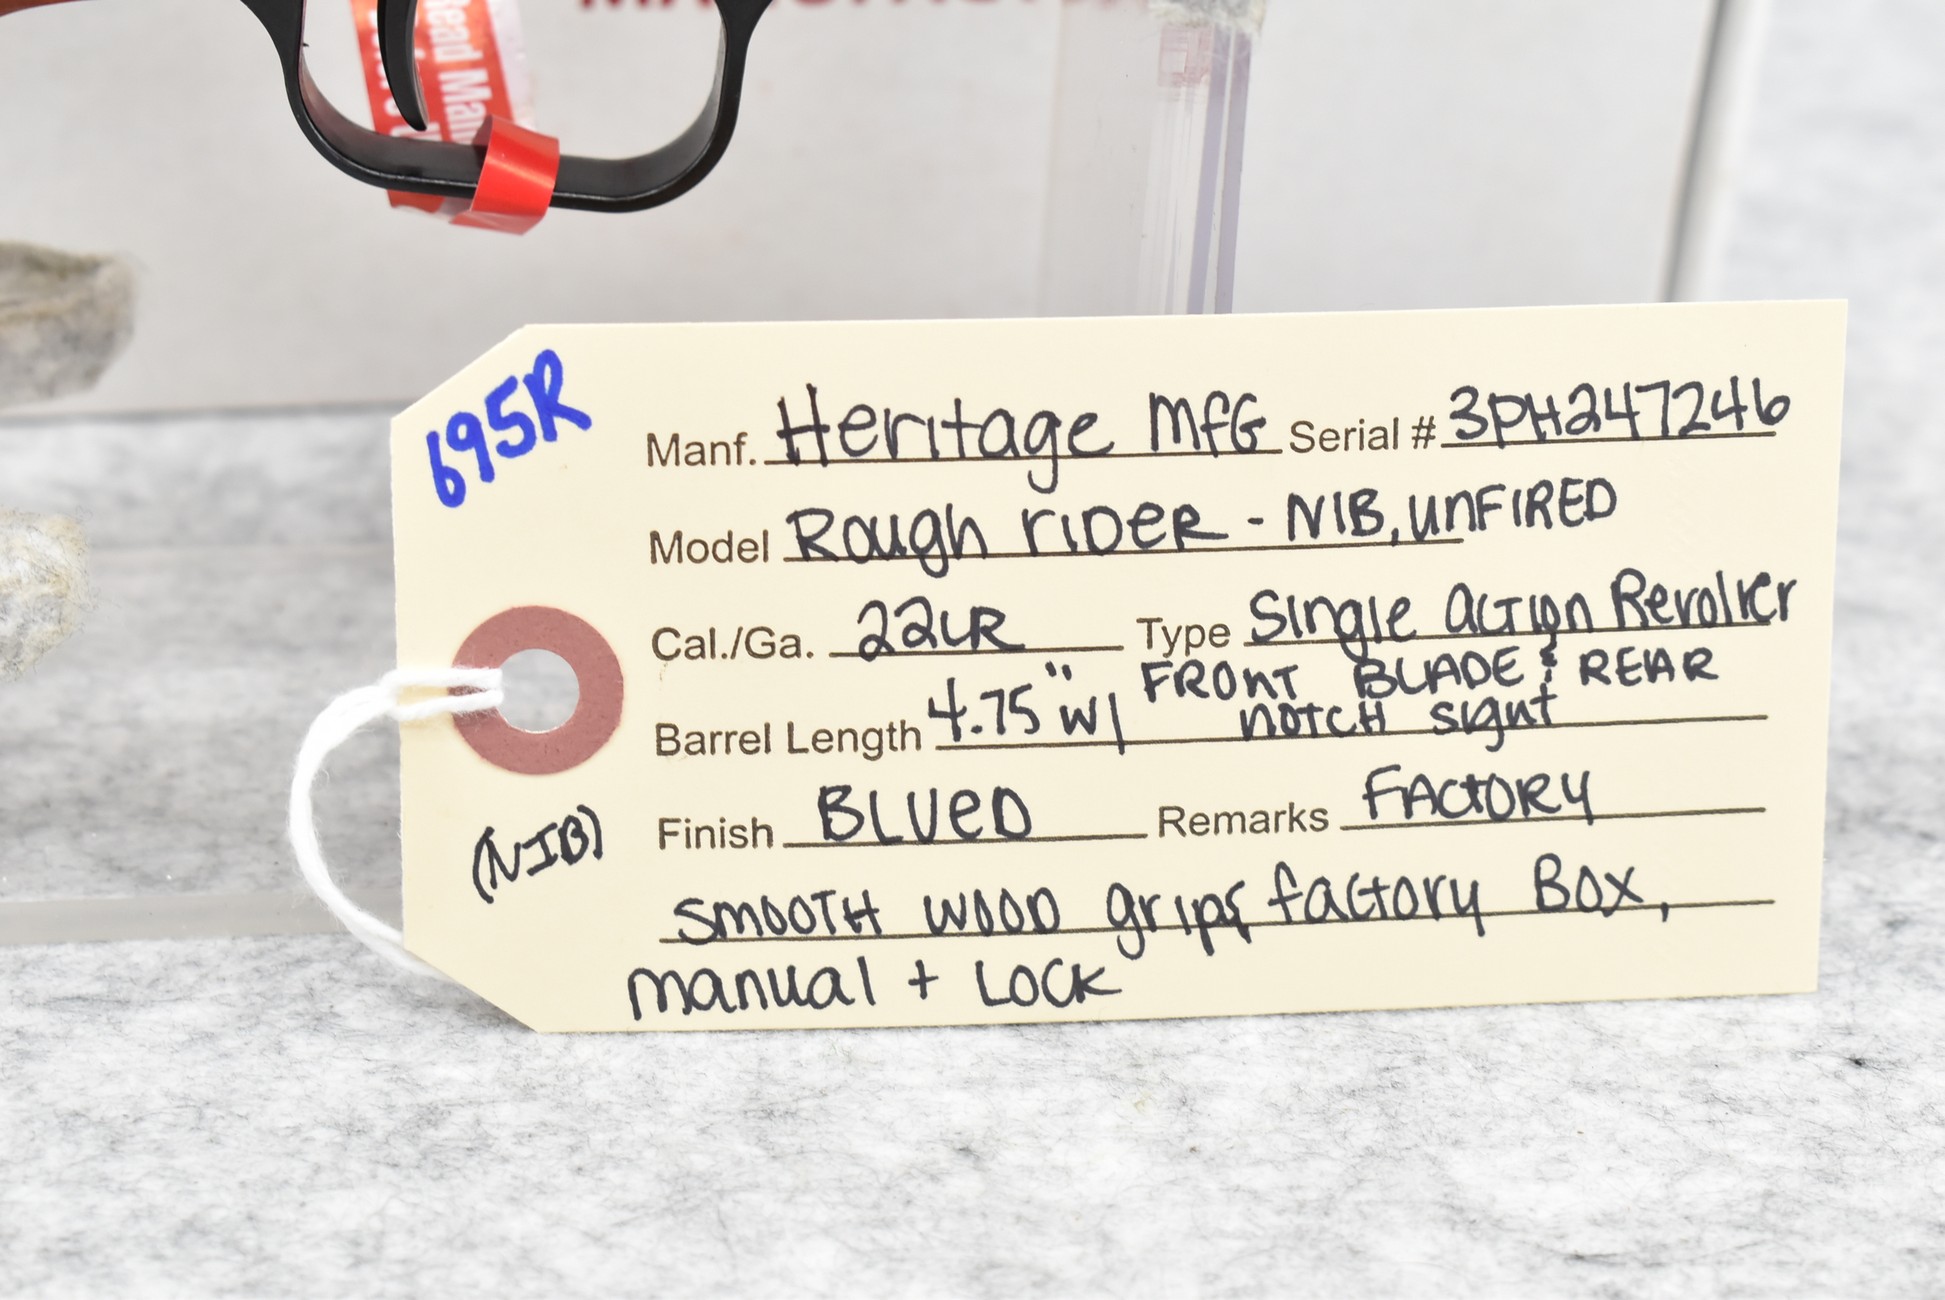 Read Man
695R
Manf. Heritage MfG Serial # 3PH247246
Model Rough RIDER - NIB, UNFIRED
Cal./Ga. 22LR Type Single Action Revolver
Barrel Length 4.75" W/ FRONT BLADE & REAR
NOTCH Sight
Finish BLUED Remarks FACTORY
(NIB)
SMOOTH WOOD grips, factory Box,
manual + LOCK